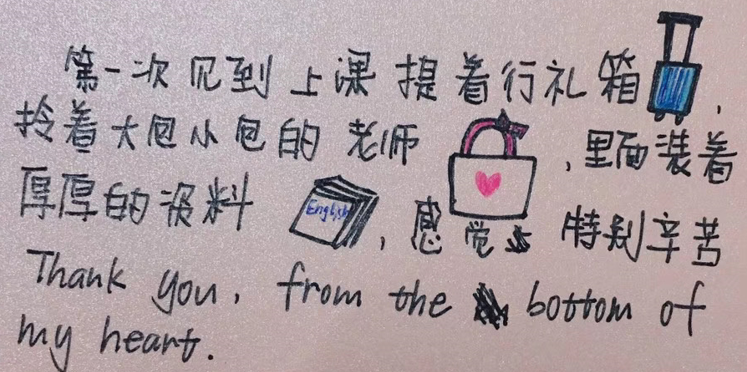 第一次见到上课提着行礼箱,
拎着大包小包的老师,里面装着
厚厚的资料 English,感觉特别辛苦
Thank you, from the bottom of
my heart.